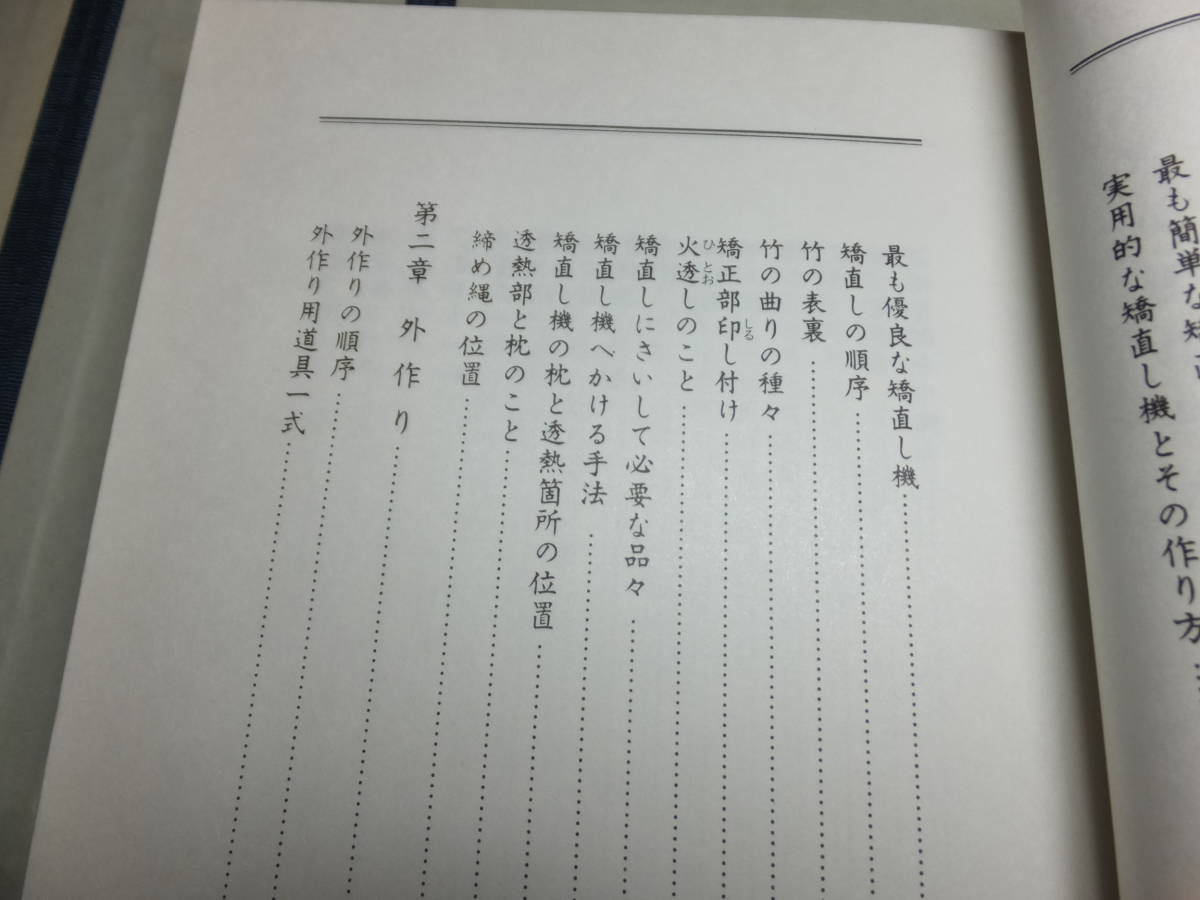 最も簡単な矯
実用的な矯直し機とその作り方
最も優良な矯直し機
矯直しの順序
竹の表裏
竹の曲りの種々
矯正部印し付け
火透しのこと
矯直しにさいして必要な品々
矯直し機へかける手法
矯直し機の枕と透熱箇所の位置
透熱部と枕のこと
締め縄の位置
第二章 外作り
外作りの順序
外作り用道具一式